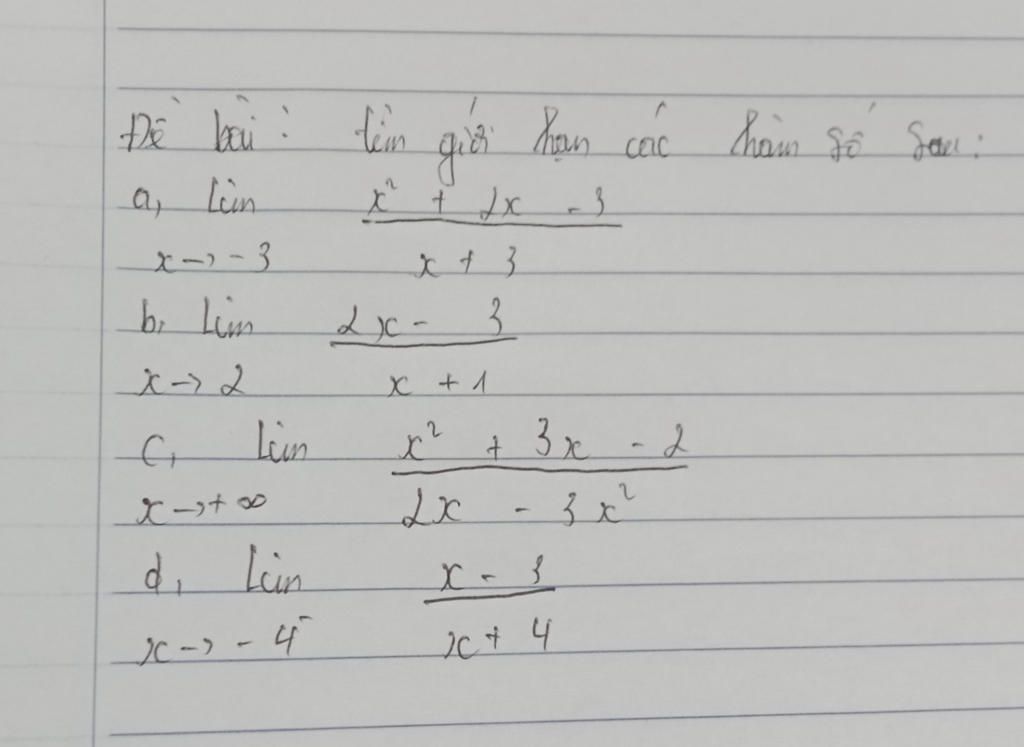 Đề bài: tìm giới hạn các hàm số sau:
a, Lim x² + 2x - 3
x → -3 x + 3
b, Lim 2x - 3
x → 2 x + 1
c, Lim x² + 3x - 2
x → + ∞ 2x - 3x²
d, Lim x - 3
x → - 4⁻ x + 4